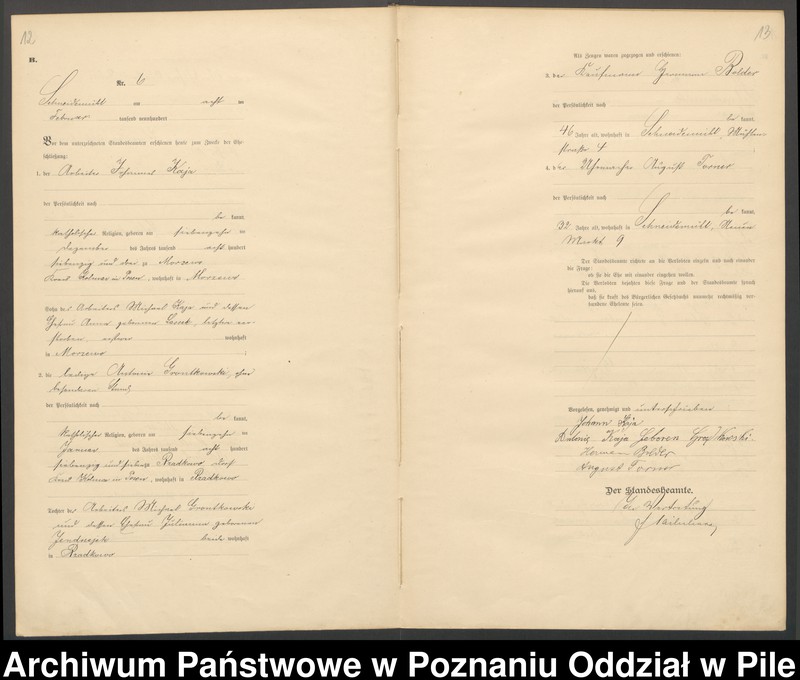 12
B.
Nr. 6
Schneidemühl am acht en
Februar tausend neunhundert
Vor dem unterzeichneten Standesbeamten erschienen heute zum Zwecke der Ehe-
schließung:
1. der Arbeiter Johannes Kaja
der Persönlichkeit nach
be kannt,
katholischer Religion, geboren am siebenzehn ten
Dezember des Jahres tausend acht hundert
siebenzig und drei zu Morzewo
Kreis Kolmar in Posen, wohnhaft in Morzewo
Sohn des Arbeiters Michael Kaja und dessen
Ehefrau Anna geborene, letztere ver-
storben, ersterer wohnhaft
in Morzewo
2. die ledige Antonie Grontkowski, ohne
besonderen Stand,
der Persönlichkeit nach
be kannt,
katholischer Religion, geboren am siebenzehn ten
Januar des Jahres tausend acht hundert
siebenzig und sieben zu Radkowo
Kreis Kolmar in Posen, wohnhaft in Radkowo
Tochter des Arbeiters Michael Grontkowski
und dessen Ehefrau Julianna geborenen
beide wohnhaft
in Radkowo
13
Als Zeugen waren zugezogen und erschienen:
3. der Kaufmann Hermann Bolder
der Persönlichkeit nach
be kannt,
46 Jahre alt, wohnhaft in Schneidemühl, Mühlen-
straße 4
4. der Uhrmacher August Torner
der Persönlichkeit nach
be kannt,
32 Jahre alt, wohnhaft in Schneidemühl, Neuer
Markt 9
Der Standesbeamte richtete an die Verlobten einzeln und nach einander
die Frage:
ob sie die Ehe mit einander eingehen wollen.
Die Verlobten bejahten diese Frage und der Standesbeamte sprach
hierauf aus,
daß sie kraft des Bürgerlichen Gesetzbuchs nunmehr rechtmäßig ver-
bundene Eheleute seien.
Vorgelesen, genehmigt und unterschrieben
Johann Kaja
Kaja Geboren
Herman Bolder
August Torner
Der Standesbeamte.
In Vertretung
Archiwum Państwowe w Poznaniu Oddział w Pile